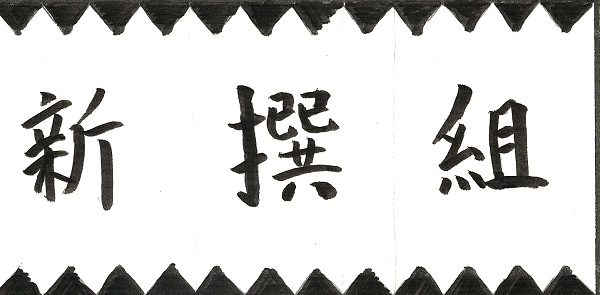 新撰組